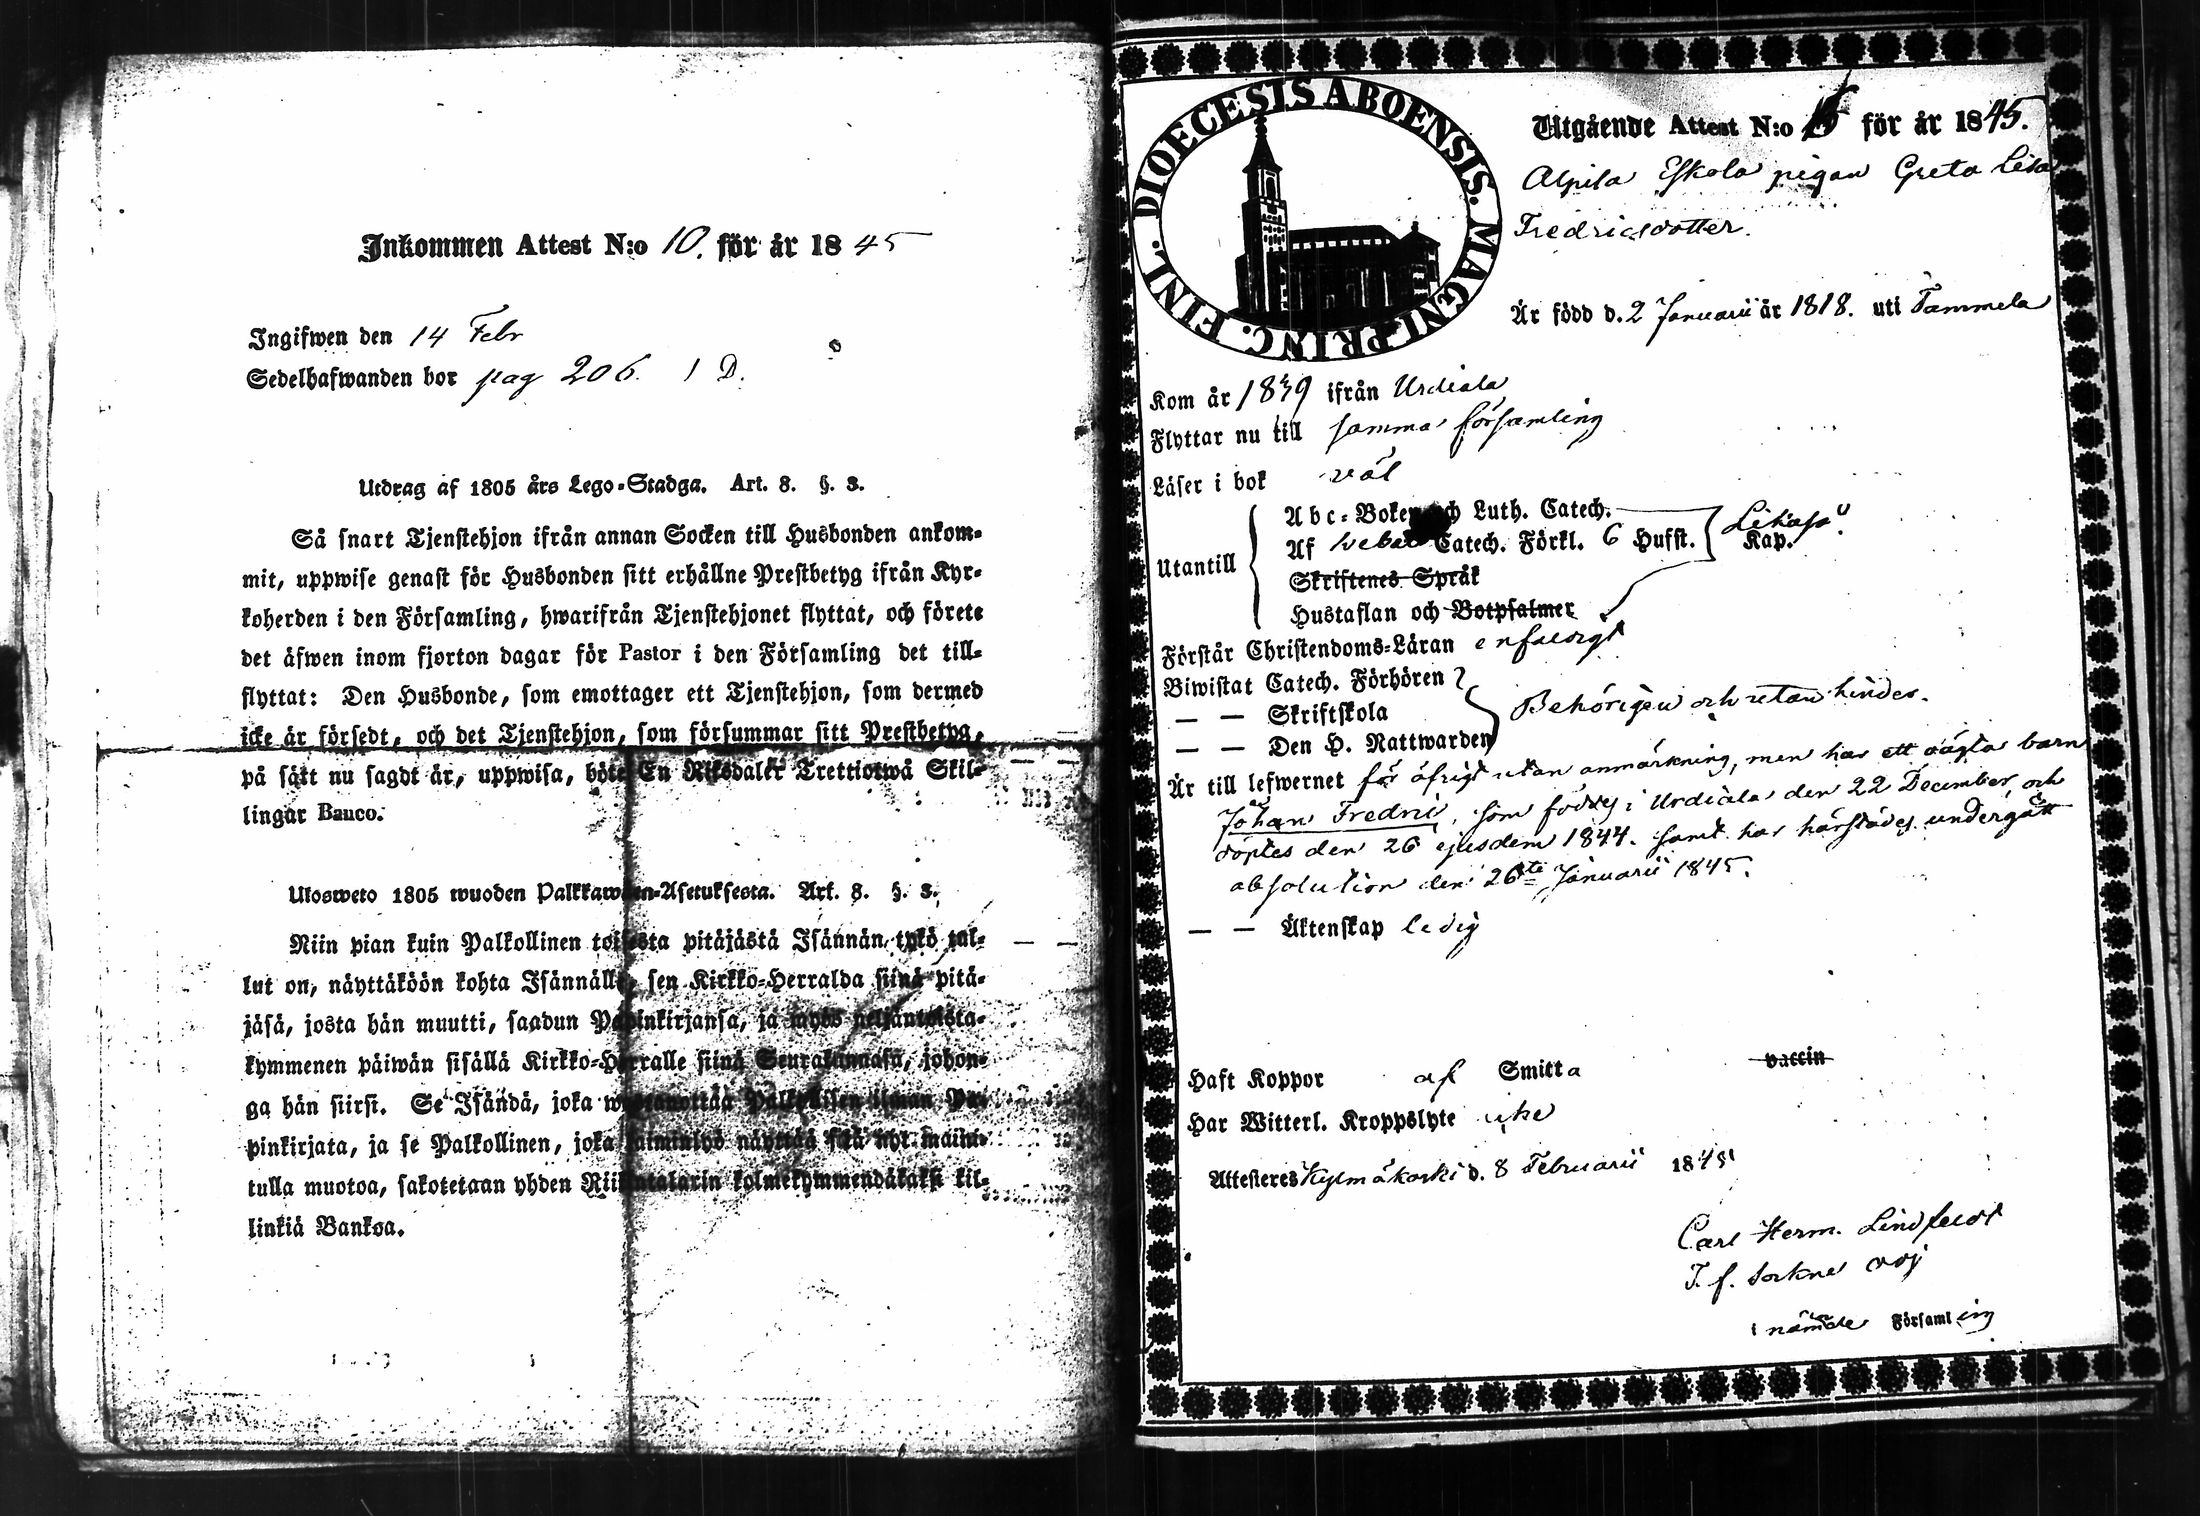 Inkommen Attest N:o 10. för år 1845
Ingifwen den 14 Febr
Sedelhafwanden bor pag 206. 1 D.
Utdrag af 1805 års Lego-Stadga. Art. 8. §. 3.
Så snart Tjenstehjon ifrån annan Socken till Husbonden ankom-
mit, uppwise genast för Husbonden sitt erhållne Prestbetyg ifrån Kyr-
koherden i den Församling, hwarifrån Tjenstehjonet flyttat, och förete
det äfwen inom fjorton dagar för Pastor i den Församling det till-
flyttat: Den Husbonde, som emottager ett Tjenstehjon, som dermed
icke är försedt, och det Tjenstehjon, som försummar sitt Prestbetyg,
på sätt nu sagdt är, uppwisa, böte En Riksdaler Trettiotwå Skil-
lingar Banco.
Ulosweto 1805 wuoden Palkkawäen-Asetuksesta. Art. 8. §. 3.
Niin pian kuin Palkollinen toisesta pitäjästä Isännän tykö tul-
lut on, näyttäköön kohta Isännälle, sen Kirkko-Herralda siinä pitä-
jäsä, josta hän muutti, saadun Papinkirjansa, ja myös neljäntoista-
kymmenen päiwän sisällä Kirkko-Herralle siinä Seurakunnasa, johon-
ga hän siirsi. Se Isändä, joka wastanottaa Palkollisen ilman Pa-
pinkirjata, ja se Palkollinen, joka laiminlyö näyttää sitä nyt maini-
tulla muotoa, sakotetaan yhden Riikintalarin kolmekymmendäkaksi kil-
linkiä Bankoa.
DIOECESIS ABOENSIS. MAGNI PRINC. FINL.
Utgående Attest N:o för år 1845.
Alpila Eskola pigan Greta Lisa
Fredricsdotter.
Är född d. 2 Januarii år 1818. uti Tammela
Kom år 1839 ifrån Urdiala
Flyttar nu till samma församling
Läser i bok väl
Utantill
Abc-Boken och Luth. Catech.
Af Catech. Förkl. 6 Hufst. Kap.
Skriftenes Språk
Hustaflan och Botpsalmer
Förstår Christendoms-Läran enfaldigt
Biwistat Catech. Förhören
— — Skriftskola Behörigen och utan hinder.
— — Den H. Nattwarden
Är till lefwernet för öfrigt utan anmärkning, men har ett oägta barn
Johan Fredric, som föddes i Urdiala den 22 December, och
döptes den 26 ejusdem 1844. samt har härstädes undergått
absolution den 26te Januarii 1845.
— — Äktenskap ledig
Haft Koppor af Smitta vaccin
Har Witterl. Kroppslyte icke
Attesteres Kylmäkoski d. 8 Februarii 1845
Carl Herm. Lindfeldt
T. f. Sockne adj
i nämde Församling